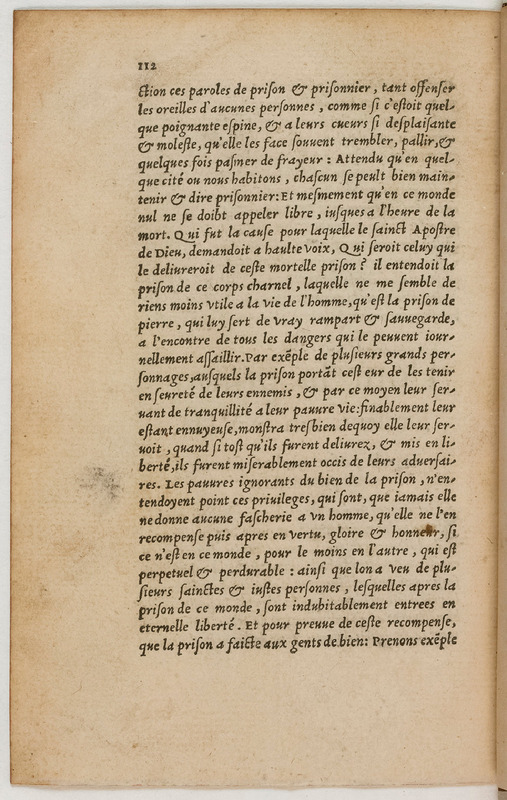 112
ction ces paroles de priſon & priſonnier, tant offenſer
les oreilles d'aucunes perſonnes, comme ſi c'eſtoit quel-
que poignante eſpine, & a leurs cueurs ſi deſplaiſante
& moleſte, qu'elle les face ſouuent trembler, pallir, &
quelques fois paſmer de frayeur : Attendu qu'en quel-
que cité ou nous habitons, chaſcun ſe peult bien main-
tenir & dire priſonnier: Et meſmement qu'en ce monde
nul ne ſe doibt appeler libre, iuſques a l'heure de la
mort. Qui fut la cauſe pour laquelle le ſainct Apoſtre
de Dieu, demandoit a haulte voix, Qui ſeroit celuy qui
le deliureroit de ceſte mortelle priſon? il entendoit la
priſon de ce corps charnel, laquelle ne me ſemble de
riens moins vtile a la vie de l'homme, qu'eſt la priſon de
pierre, qui luy ſert de vray rampart & ſauuegarde,
a l'encontre de tous les dangers qui le peuuent iour-
nellement aſſaillir. Par exẽple de pluſieurs grands per-
ſonnages, auſquels la priſon portãt ceſt eur de les tenir
en ſeureté de leurs ennemis, & par ce moyen leur ſer-
uant de tranquillité a leur pauure vie: finablement leur
eſtant ennuyeuſe, monſtra treſbien dequoy elle leur ſer-
uoit, quand ſi toſt qu'ils furent deliurez, & mis en li-
berté, ils furent miſerablement occis de leurs aduerſai-
res. Les pauures ignorants du bien de la priſon, n'en-
tendoyent point ces priuileges, qui ſont, que iamais elle
ne donne aucune faſcherie a vn homme, qu'elle ne l'en
recompenſe puis apres en vertu, gloire & honneur, ſi
ce n'eſt en ce monde, pour le moins en l'autre, qui eſt
perpetuel & perdurable : ainſi que lon a veu de plu-
ſieurs ſainctes & iuſtes perſonnes, leſquelles apres la
priſon de ce monde, ſont indubitablement entrees en
eternelle liberté. Et pour preuue de ceſte recompenſe,
que la priſon a faicte aux gents de bien: Prenons exẽple